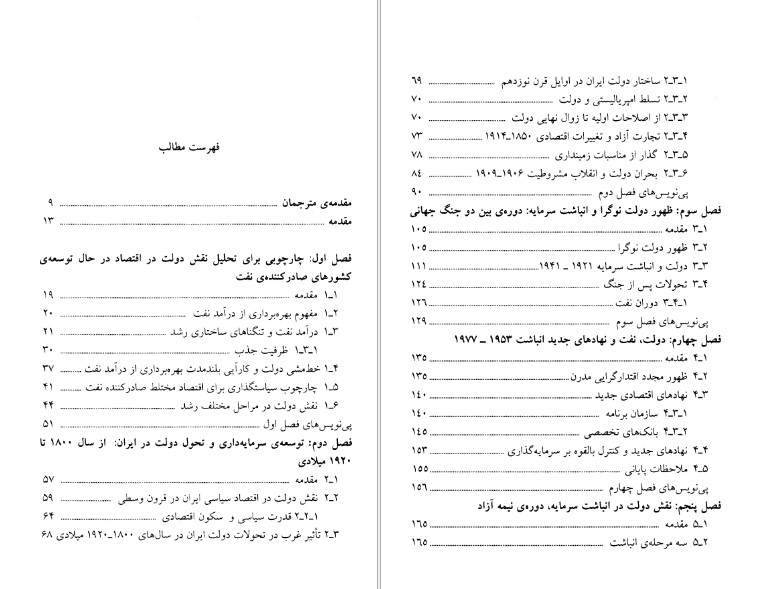 فهرست مطالب
مقدمه‌ی مترجمان ........ ۹
مقدمه ........ ۱۳
فصل اول: چارچوبی برای تحلیل نقش دولت در اقتصاد در حال توسعه‌ی
کشورهای صادرکننده‌ی نفت
۱ـ۱ مقدمه ........ ۱۹
۱ـ۲ مفهوم بهره‌برداری از درآمد نفت ........ ۲۰
۱ـ۳ درآمد نفت و تنگناهای ساختاری رشد ........ ۲۱
۱ـ۳ـ۱ ظرفیت جذب ........ ۳۰
۱ـ۴ خط‌مشی دولت و کارآیی بلندمدت بهره‌برداری از درآمد نفت ........ ۳۷
۱ـ۵ چارچوب سیاستگذاری برای اقتصاد مختلط صادرکننده نفت ........ ۴۱
۱ـ۶ نقش دولت در مراحل مختلف رشد ........ ۴۴
پی‌نویس‌های فصل اول ........ ۵۱
فصل دوم: توسعه‌ی سرمایه‌داری و تحول دولت در ایران: از سال ۱۸۰۰ تا
۱۹۲۰ میلادی
۲ـ۱ مقدمه ........ ۵۷
۲ـ۲ نقش دولت در اقتصاد سیاسی ایران در قرون وسطی ........ ۵۹
۲ـ۲ـ۱ قدرت سیاسی و سکون اقتصادی ........ ۶۴
۲ـ۳ تأثیر غرب در تحولات دولت ایران در سال‌های ۱۸۰۰ـ۱۹۲۰ میلادی ۶۸
۲ـ۳ـ۱ ساختار دولت ایران در اوایل قرن نوزدهم ........ ۶۹
۲ـ۳ـ۲ تسلط امپریالیستی و دولت ........ ۷۰
۲ـ۳ـ۳ از اصلاحات اولیه تا زوال نهایی دولت ........ ۷۰
۲ـ۳ـ۴ تجارت آزاد و تغییرات اقتصادی ۱۸۵۰ـ۱۹۱۴ ........ ۷۳
۲ـ۳ـ۵ گذار از مناسبات زمینداری ........ ۷۸
۲ـ۳ـ۶ بحران دولت و انقلاب مشروطیت ۱۹۰۶ـ۱۹۰۹ ........ ۸۴
پی‌نویس‌های فصل دوم ........ ۹۰
فصل سوم: ظهور دولت نوگرا و انباشت سرمایه: دوره‌ی بین دو جنگ جهانی
۳ـ۱ مقدمه ........ ۱۰۵
۳ـ۲ ظهور دولت نوگرا ........ ۱۰۵
۳ـ۳ دولت و انباشت سرمایه ۱۹۲۱ ـ ۱۹۴۱ ........ ۱۱۱
۳ـ۴ تحولات پس از جنگ ........ ۱۲۴
۳ـ۴ـ۱ دوران نفت ........ ۱۲۶
پی‌نویس‌های فصل سوم ........ ۱۲۹
فصل چهارم: دولت، نفت و نهادهای جدید انباشت ۱۹۵۳ ـ ۱۹۷۷
۴ـ۱ مقدمه ........ ۱۳۵
۴ـ۲ ظهور مجدد اقتدارگرایی مدرن ........ ۱۳۵
۴ـ۳ نهادهای اقتصادی جدید ........ ۱۴۰
۴ـ۳ـ۱ سازمان برنامه ........ ۱۴۰
۴ـ۳ـ۲ بانک‌های تخصصی ........ ۱۴۵
۴ـ۴ نهادهای جدید و کنترل بالقوه بر سرمایه‌گذاری ........ ۱۵۳
۴ـ۵ ملاحظات پایانی ........ ۱۵۵
پی‌نویس‌های فصل چهارم ........ ۱۵۶
فصل پنجم: نقش دولت در انباشت سرمایه، دوره‌ی نیمه آزاد
۵ـ۱ مقدمه ........ ۱۶۵
۵ـ۲ سه مرحله‌ی انباشت ........ ۱۶۵